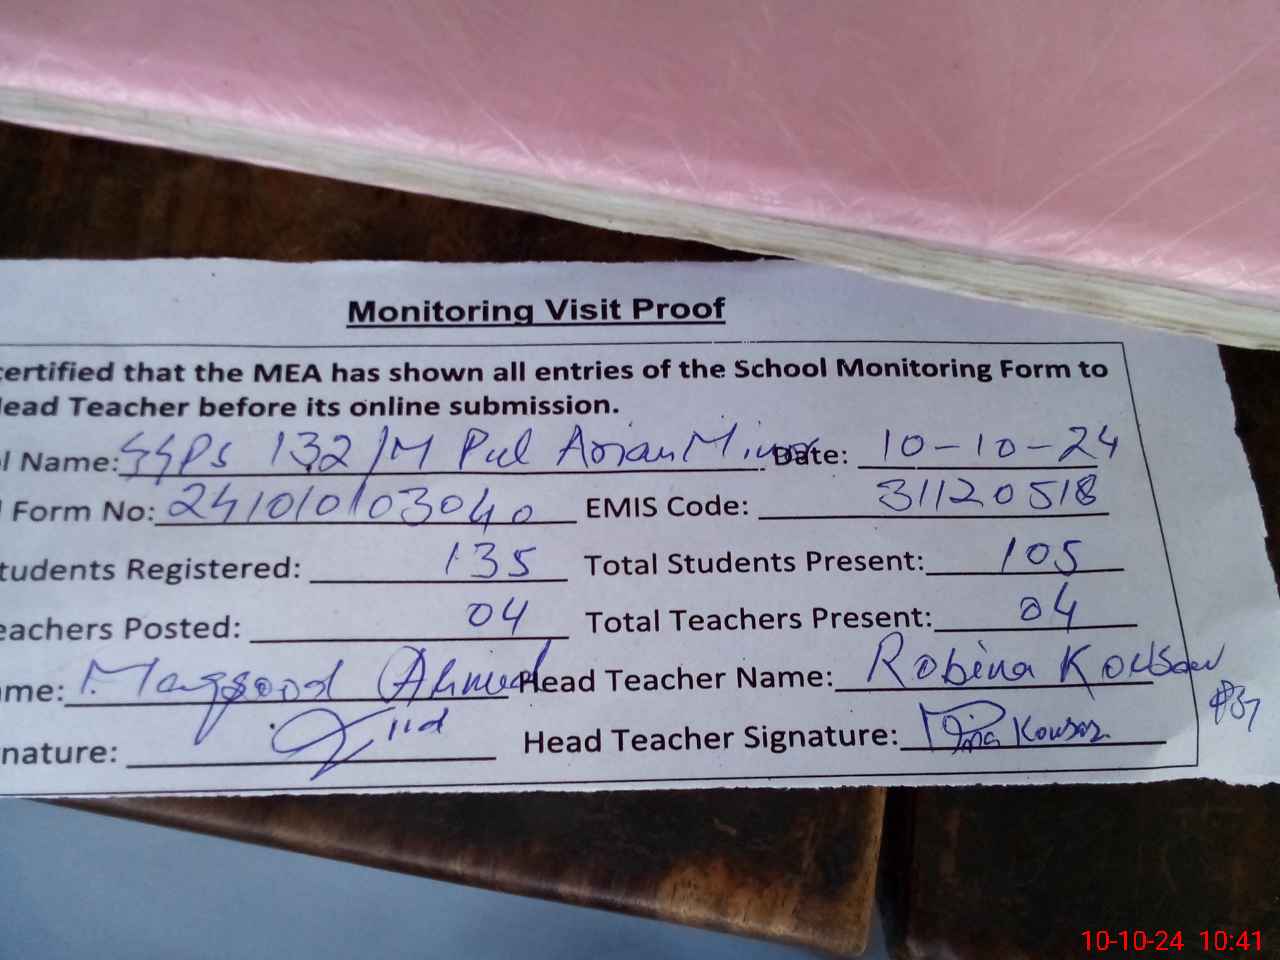 Monitoring Visit Proof
certified that the MEA has shown all entries of the School Monitoring Form to
Head Teacher before its online submission.
l Name: GGPS 132/M Pul Arian Minor Date: 10-10-24
Form No: 241010103040 EMIS Code: 31120518
tudents Registered: 135 Total Students Present: 105
eachers Posted: 04 Total Teachers Present: 04
me: Maqsood Ahmed Head Teacher Name: Robina Kousar
nature: Head Teacher Signature: Kousar
10-10-24 10:41